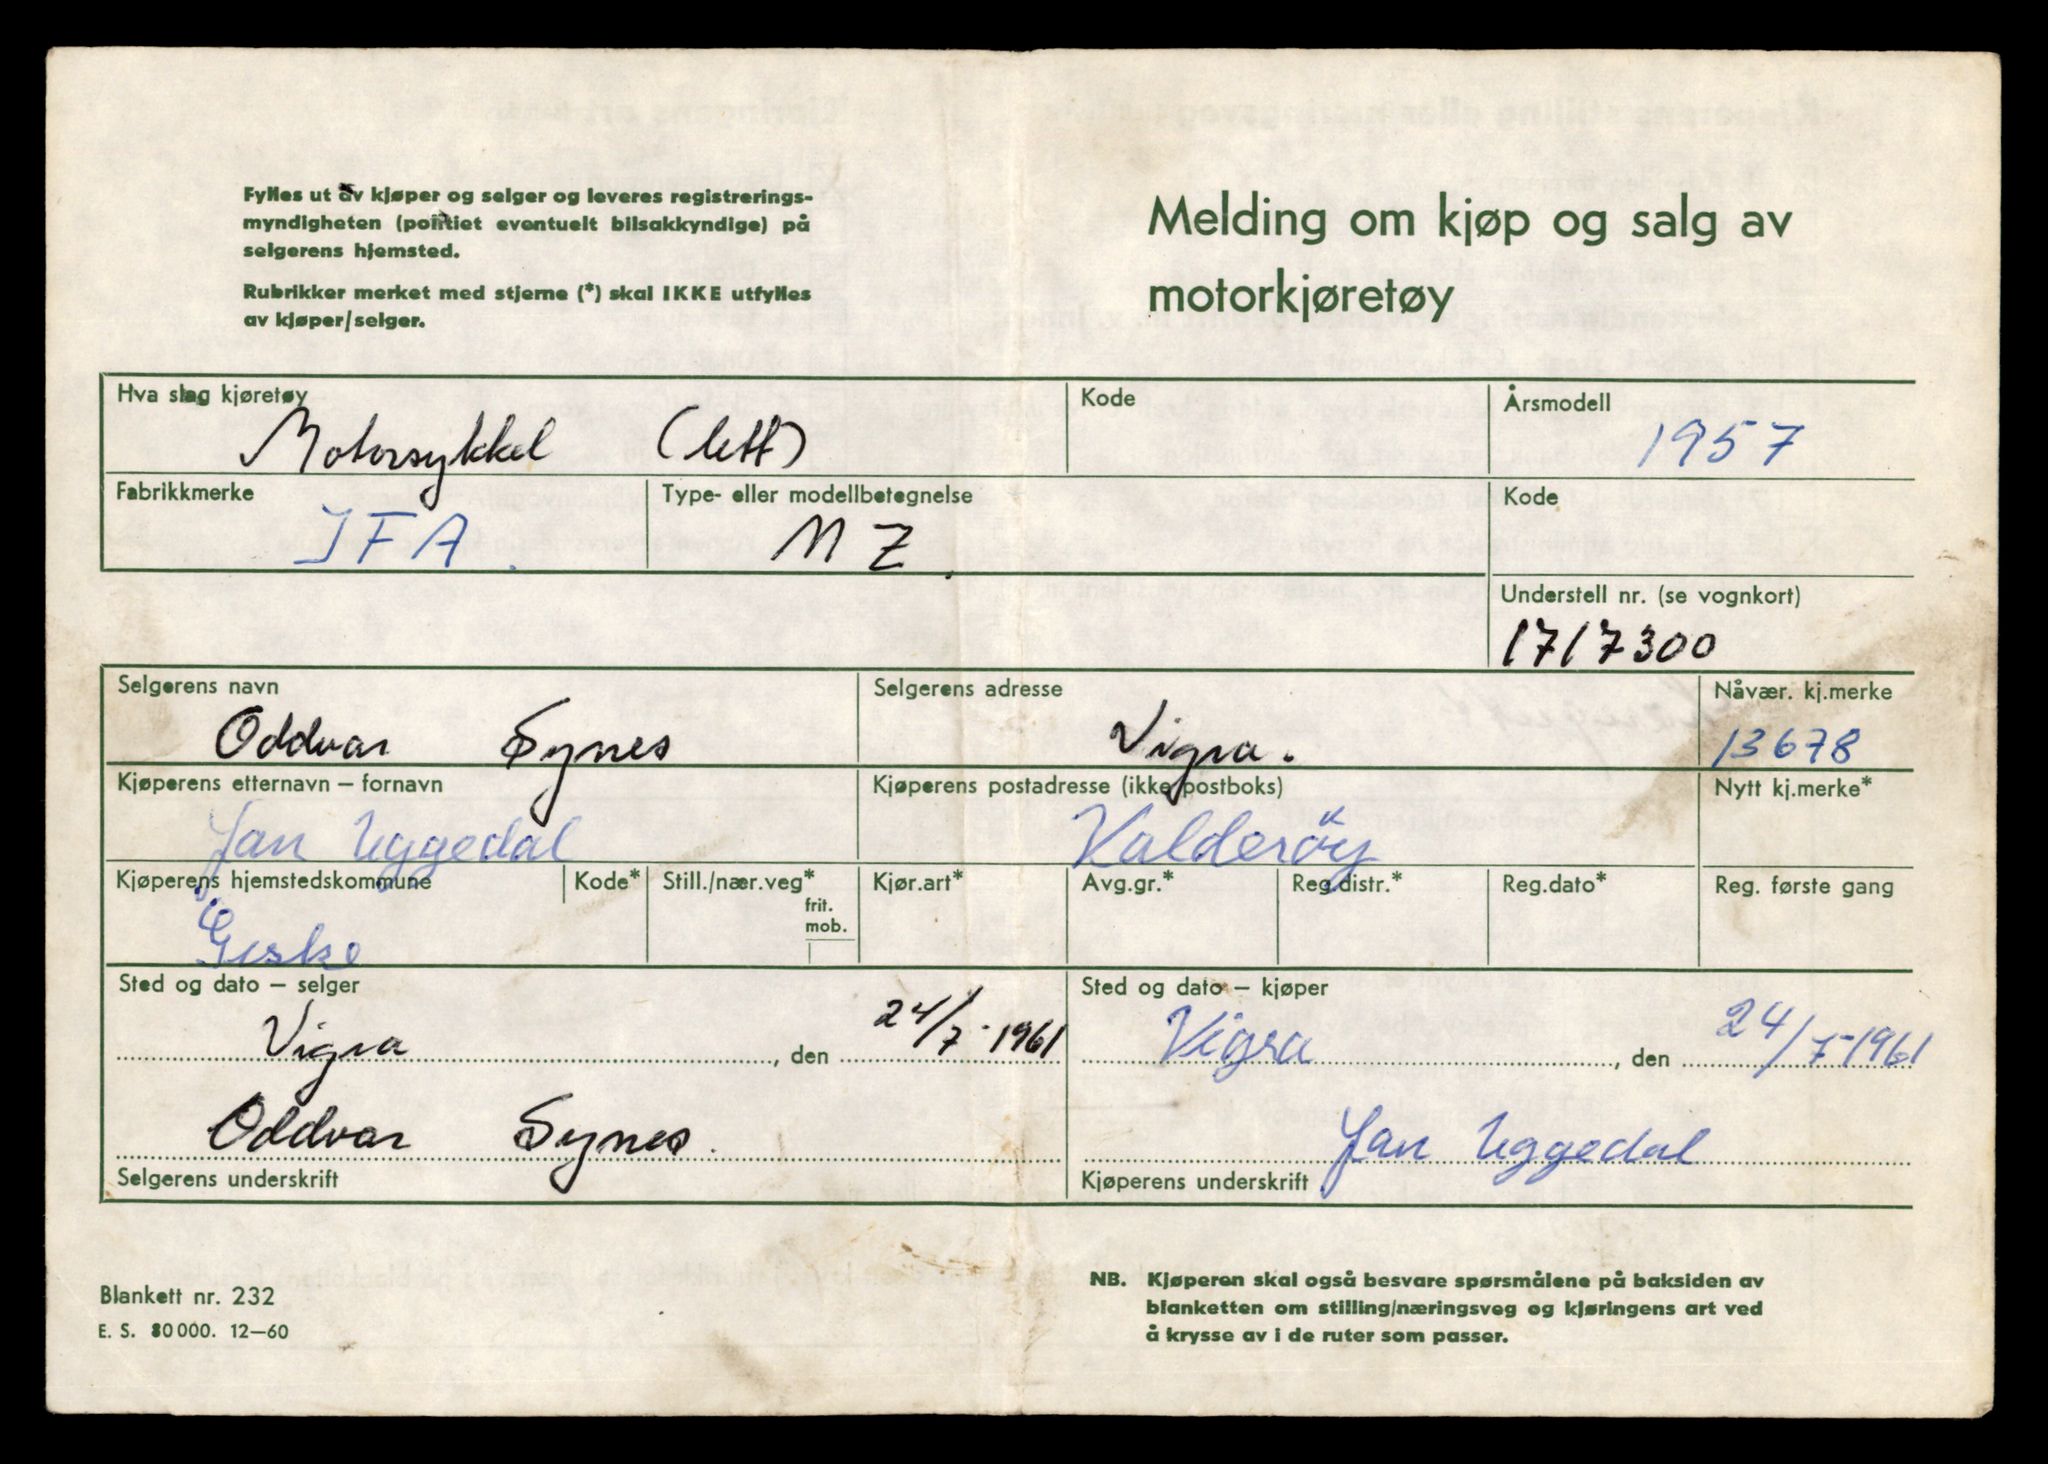 Fylles ut av kjøper og selger og leveres registrerings-
myndigheten (politiet eventuelt bilsakkyndige) på
selgerens hjemsted.
Rubrikker merket med stjerne (*) skal IKKE utfylles
av kjøper/selger.
Melding om kjøp og salg av
motorkjøretøy
Hva slag kjøretøy
Motorsykkel (lett)
Kode
Årsmodell
1957
Fabrikkmerke
IFA.
Type- eller modellbetegnelse
MZ.
Kode
Understell nr. (se vognkort)
1717300
Selgerens navn
Oddvar Synes
Selgerens adresse
Vigra.
Nåvær. kj.merke
13678
Kjøperens etternavn – fornavn
Jan Uggedal
Kjøperens postadresse (ikke postboks)
Valderöy
Nytt kj.merke*
Kjøperens hjemstedskommune
Giske
Kode*
Still./nær.veg*
frit.
mob.
Kjør.art*
Avg.gr.*
Reg.distr.*
Reg.dato*
Reg. første gang
Sted og dato – selger
Vigra, den 24/7-1961
Sted og dato – kjøper
Vigra, den 24/7-1961
Oddvar Synes.
Selgerens underskrift
Jan Uggedal
Kjøperens underskrift
Blankett nr. 232
E. S. 80000. 12–60
NB. Kjøperen skal også besvare spørsmålene på baksiden av
blanketten om stilling/næringsveg og kjøringens art ved
å krysse av i de ruter som passer.